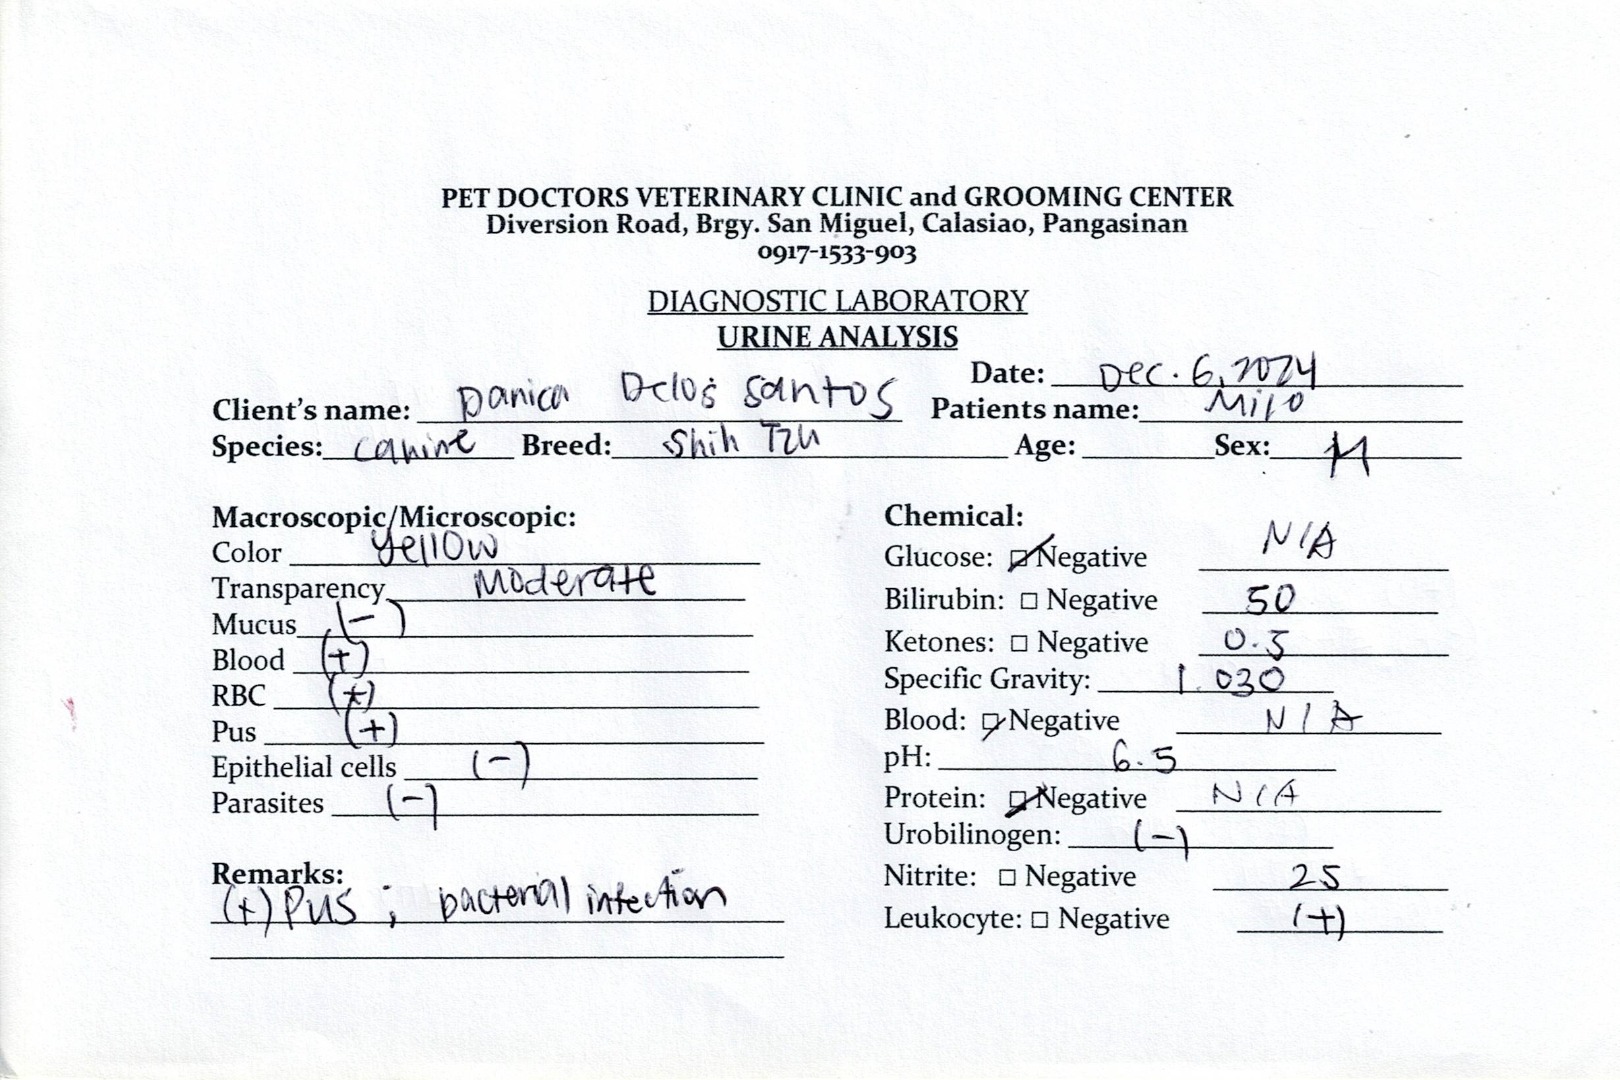 PET DOCTORS VETERINARY CLINIC and GROOMING CENTER
Diversion Road, Brgy. San Miguel, Calasiao, Pangasinan
0917-1533-903
DIAGNOSTIC LABORATORY
URINE ANALYSIS
Date: Dec. 6, 2024
Client's name: Danica Delos Santos Patients name: Milo
Species: canine Breed: Shih Tzu Age: Sex: M
Macroscopic/Microscopic:
Color yellow
Transparency Moderate
Mucus (-)
Blood (+)
RBC (+)
Pus (+)
Epithelial cells (-)
Parasites (-)
Remarks:
(+) Pus ; bacterial infection
Chemical:
Glucose: ☑ Negative N/A
Bilirubin: □ Negative 50
Ketones: □ Negative 0.5
Specific Gravity: 1.030
Blood: ☑ Negative N/A
pH: 6.5
Protein: ☑ Negative N/A
Urobilinogen: (-)
Nitrite: □ Negative 25
Leukocyte: □ Negative (+)